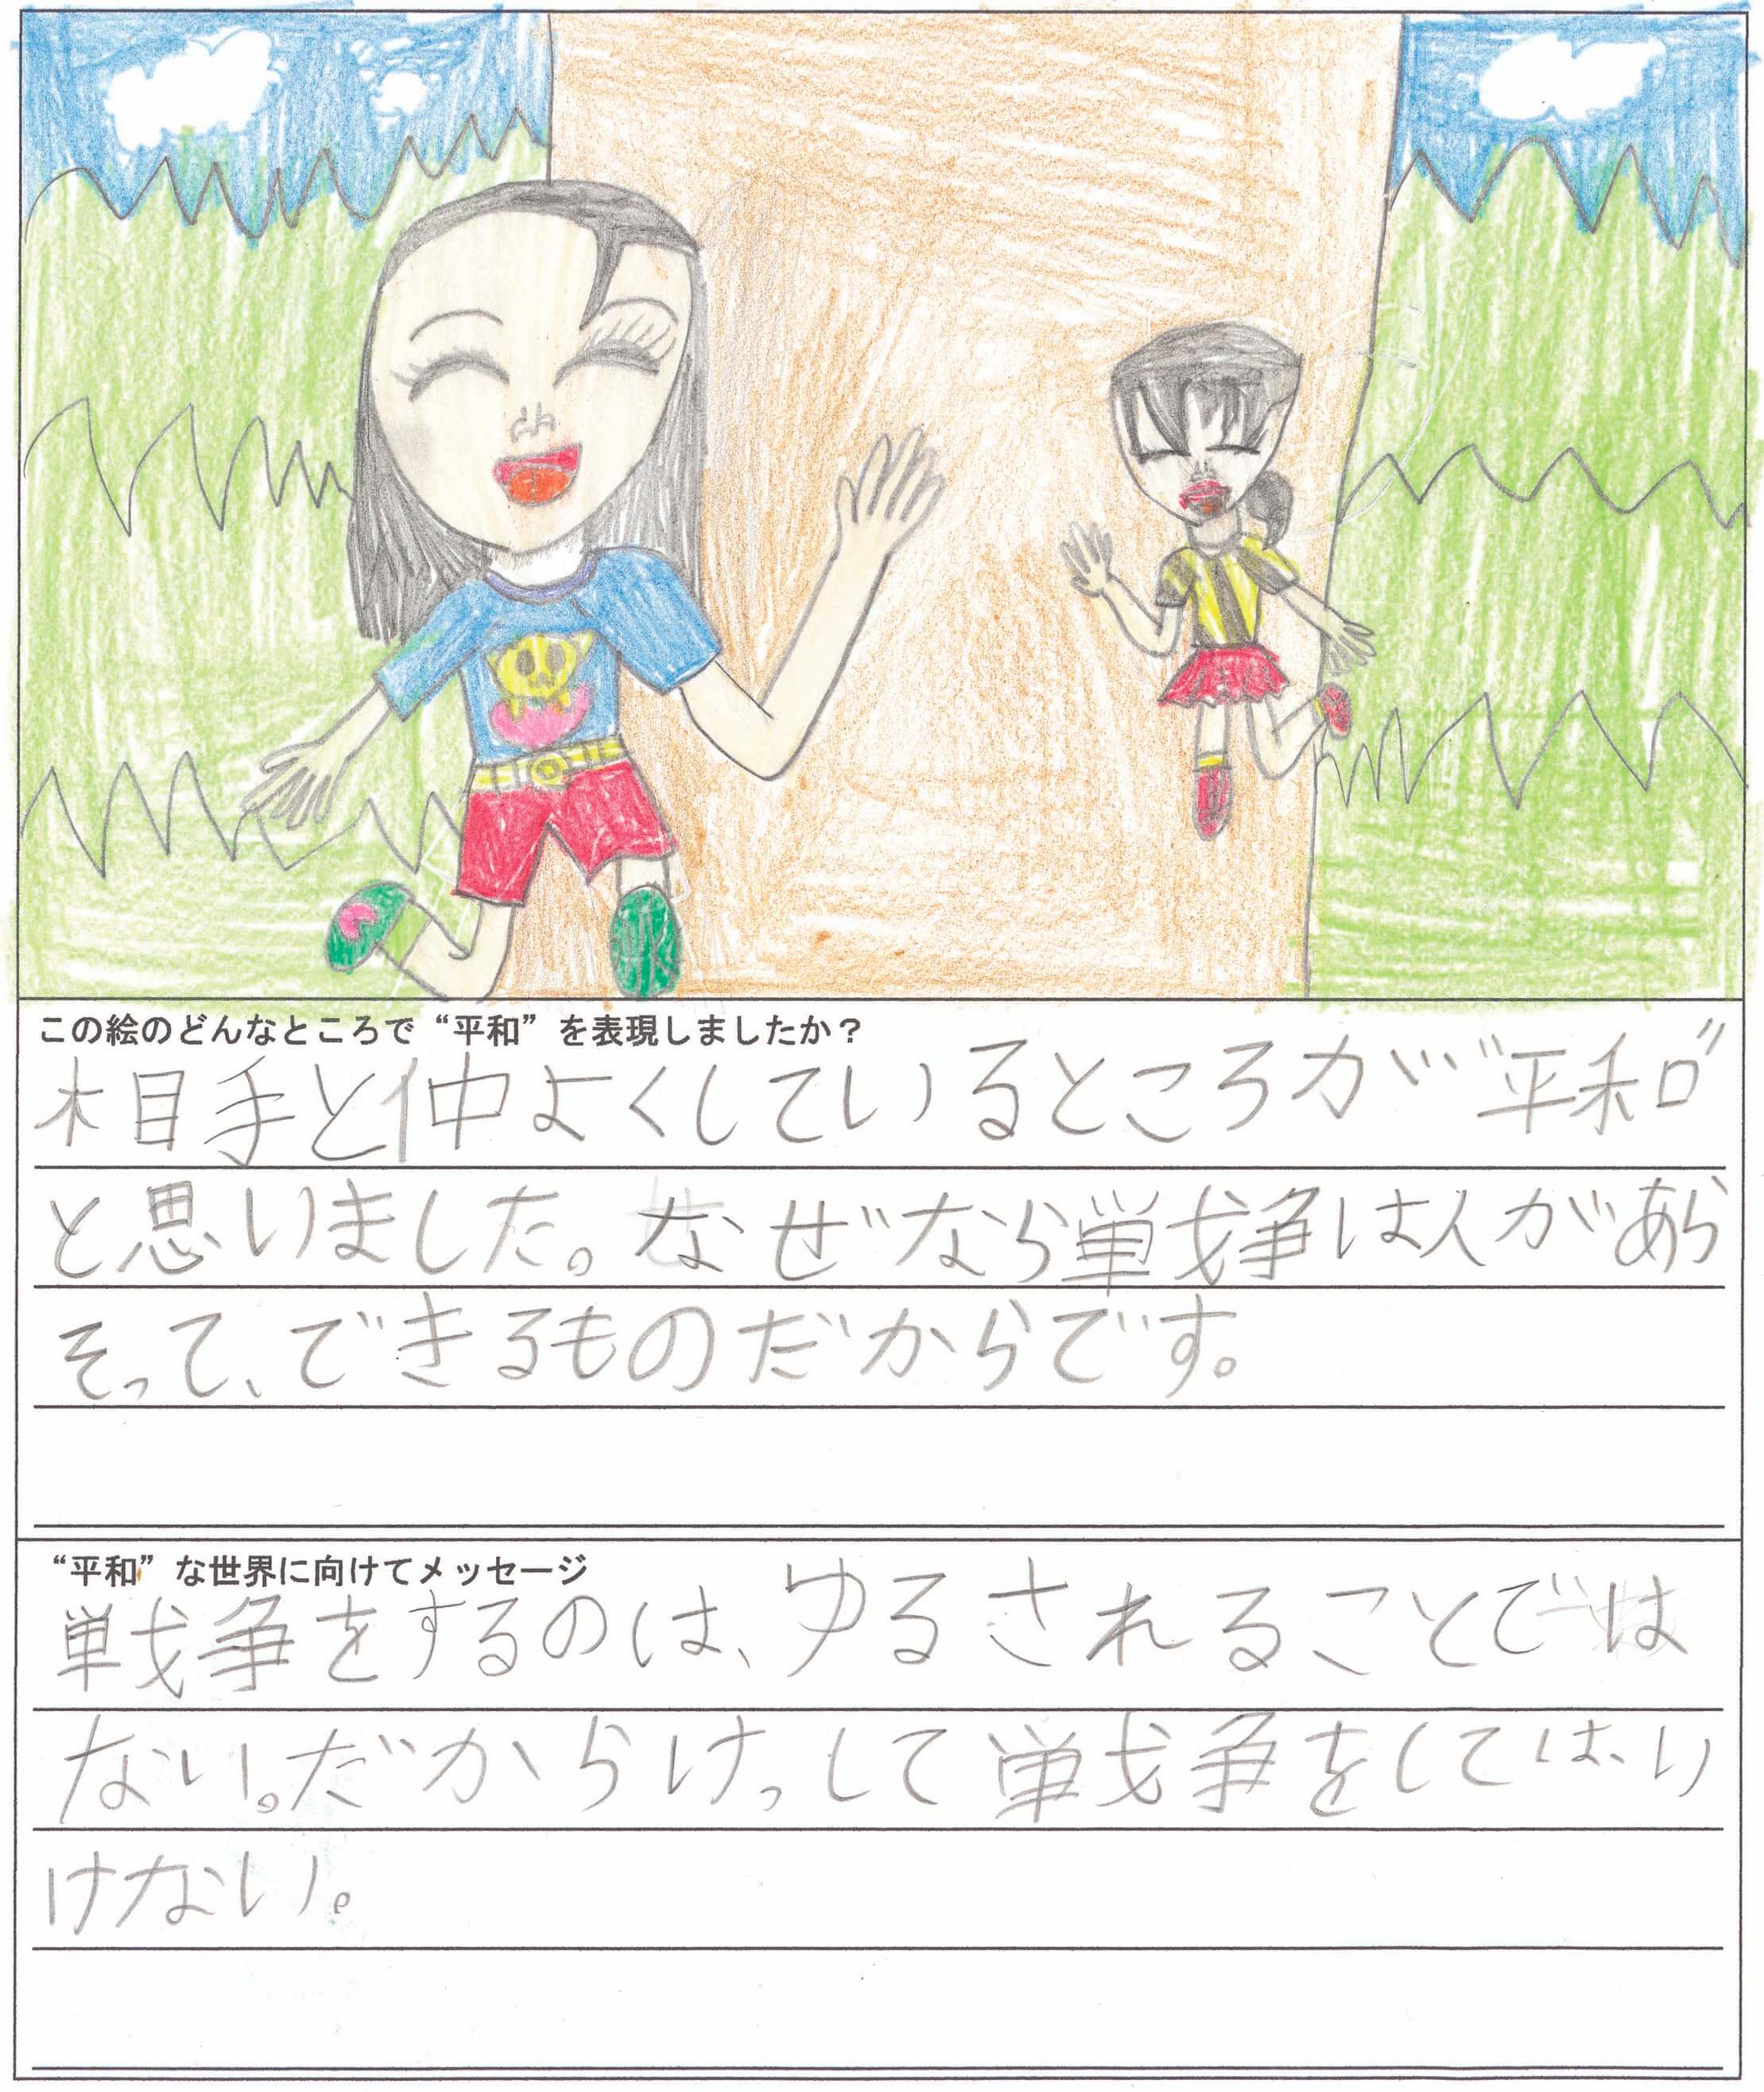 この絵のどんなところで“平和”を表現しましたか？
相手と仲よくしているところが“平和”
と思いました。なぜなら戦争は人があら
そって、できるものだからです。
“平和”な世界に向けてメッセージ
戦争をするのは、ゆるされることでは
ない。だからけっして戦争をしては、い
けない。